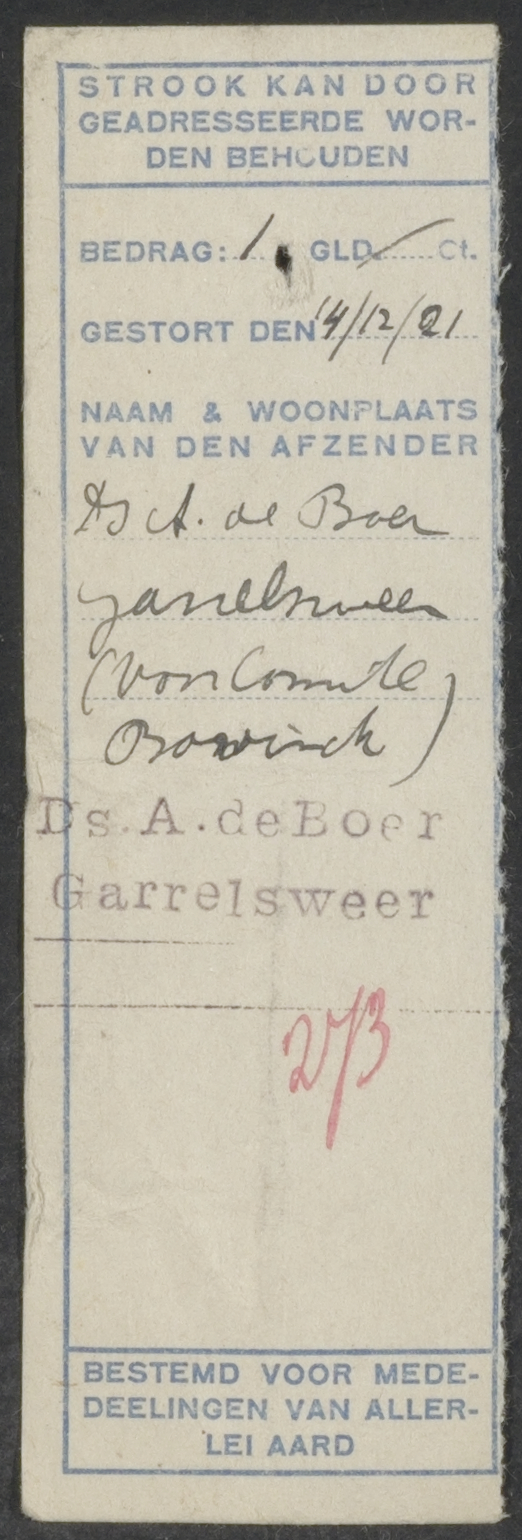 STROOK KAN DOOR
GEADRESSEERDE WOR-
DEN BEHOUDEN
BEDRAG: 1. GLD. — Ct.
GESTORT DEN 14/12/21
NAAM & WOONPLAATS
VAN DEN AFZENDER
Ds A. de Boer
Garrelsweer
(voor Comité
Bavinck)
Ds. A. de Boer
Garrelsweer
273
BESTEMD VOOR MEDE-
DEELINGEN VAN ALLER-
LEI AARD